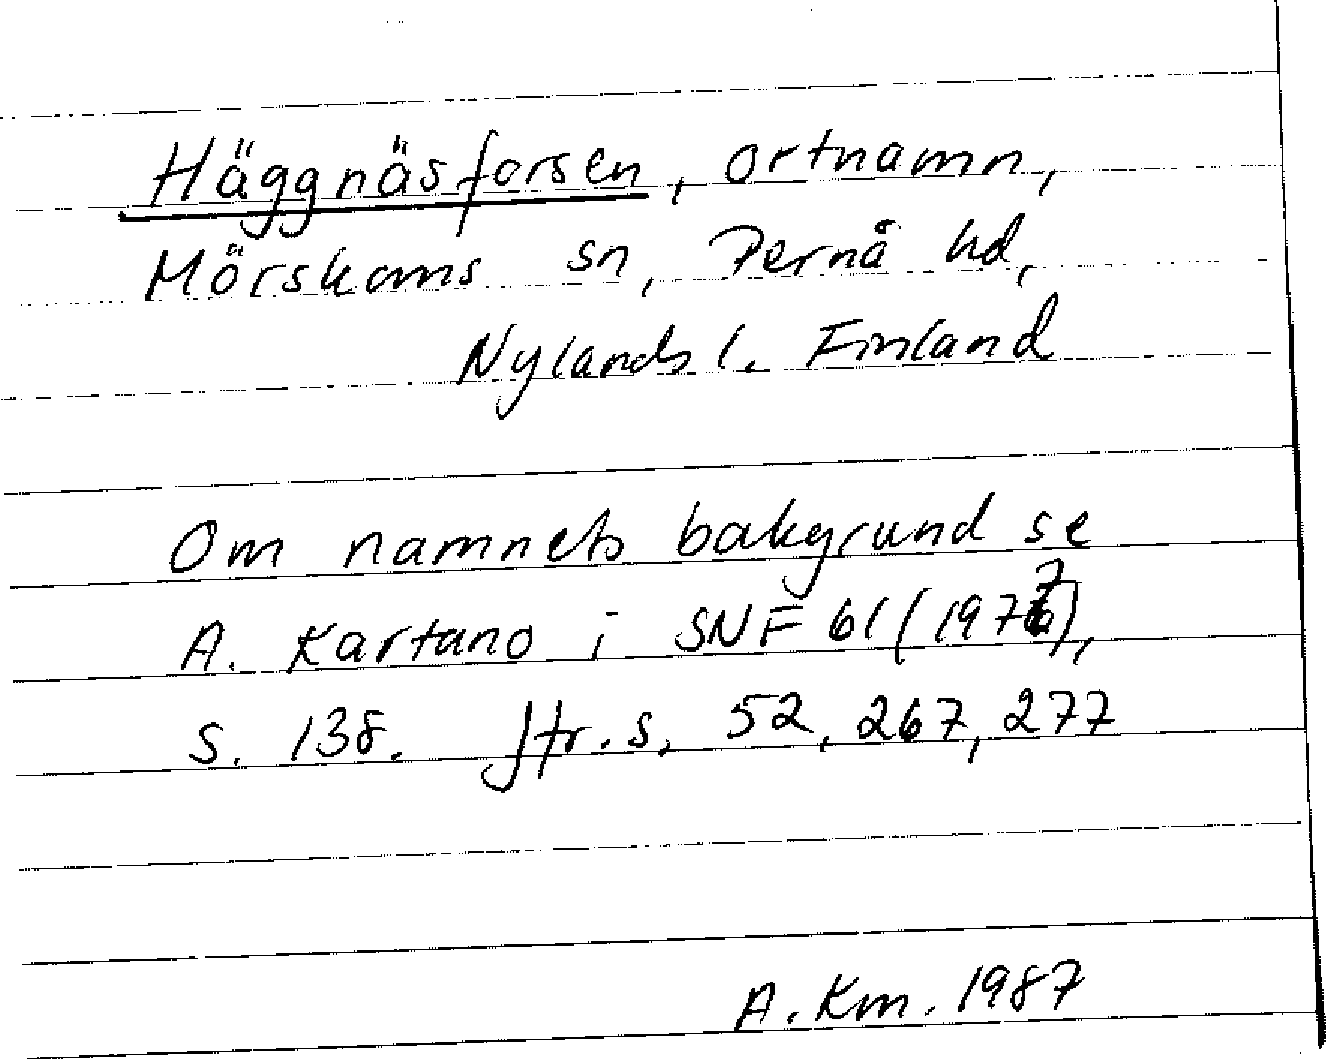 Häggnäsforsen, ortnamn,
Mörskoms sn, Pernå hd,
Nylands l. Finland
Om namnets bakgrund se
A. Kartano i SNF 61 (1977),
s. 138. Jfr. s. 52, 267, 277
A. Km. 1987